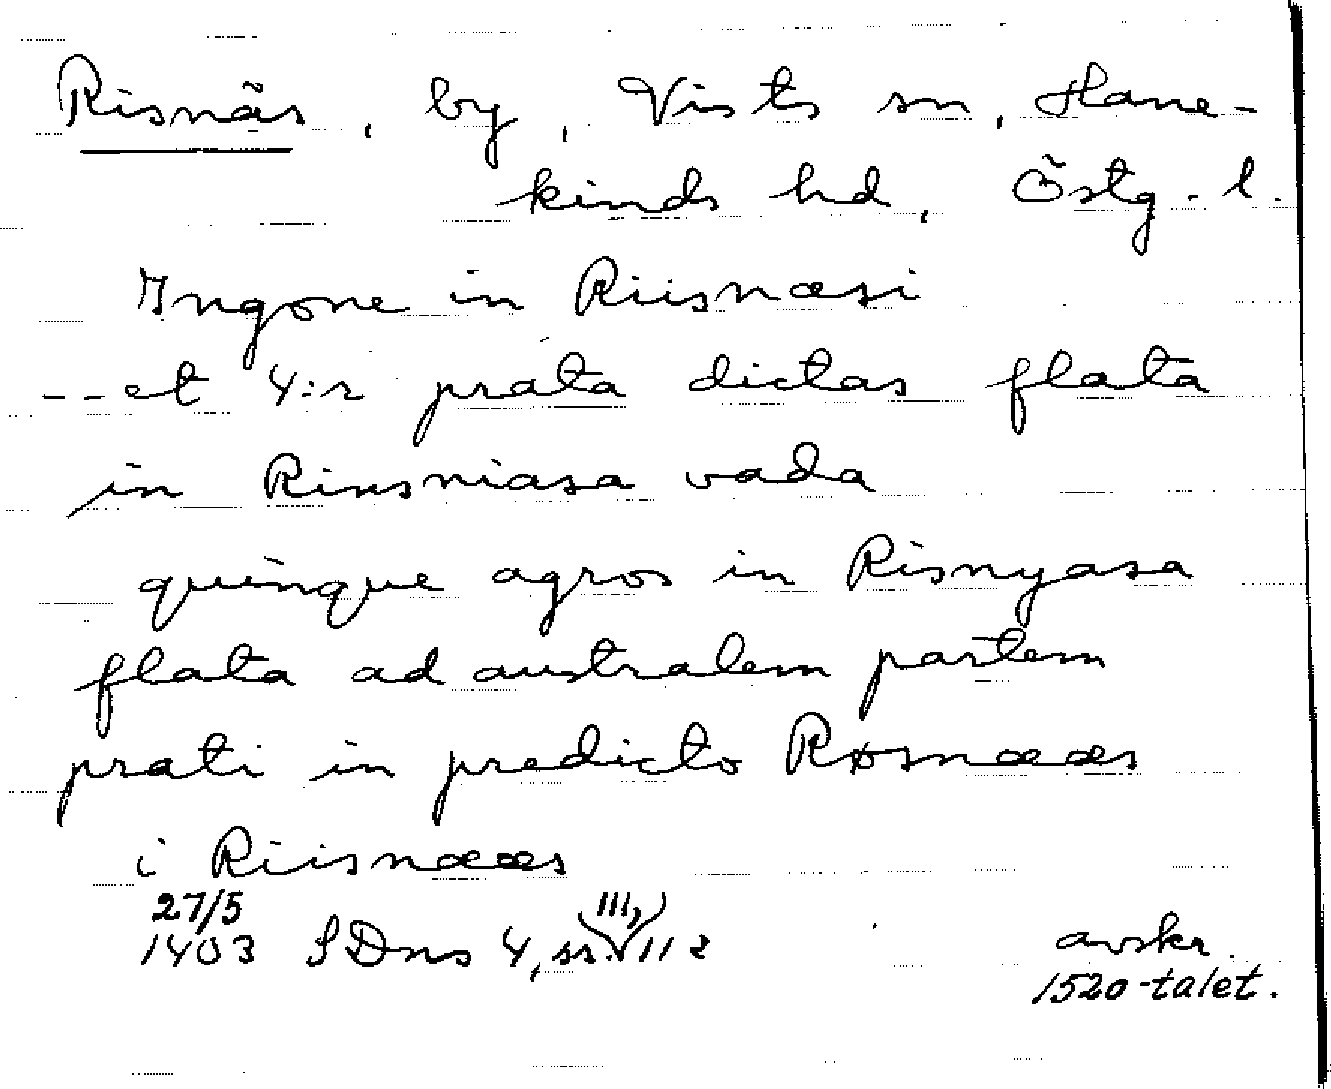 Risnäs, by, Vists sn, Hane-
kinds hd, Östg. l.
Ingone in Riisnæsi
-- et 4:r prata dictas flata
in Riinsniasa vada
quinque agros in Risnyasa
flata ad australem partem
prati in predicto Røsnææs
i Riisnææs
27/5
1403 SDns 4, ss. 111, 112
avskr.
1520-talet.